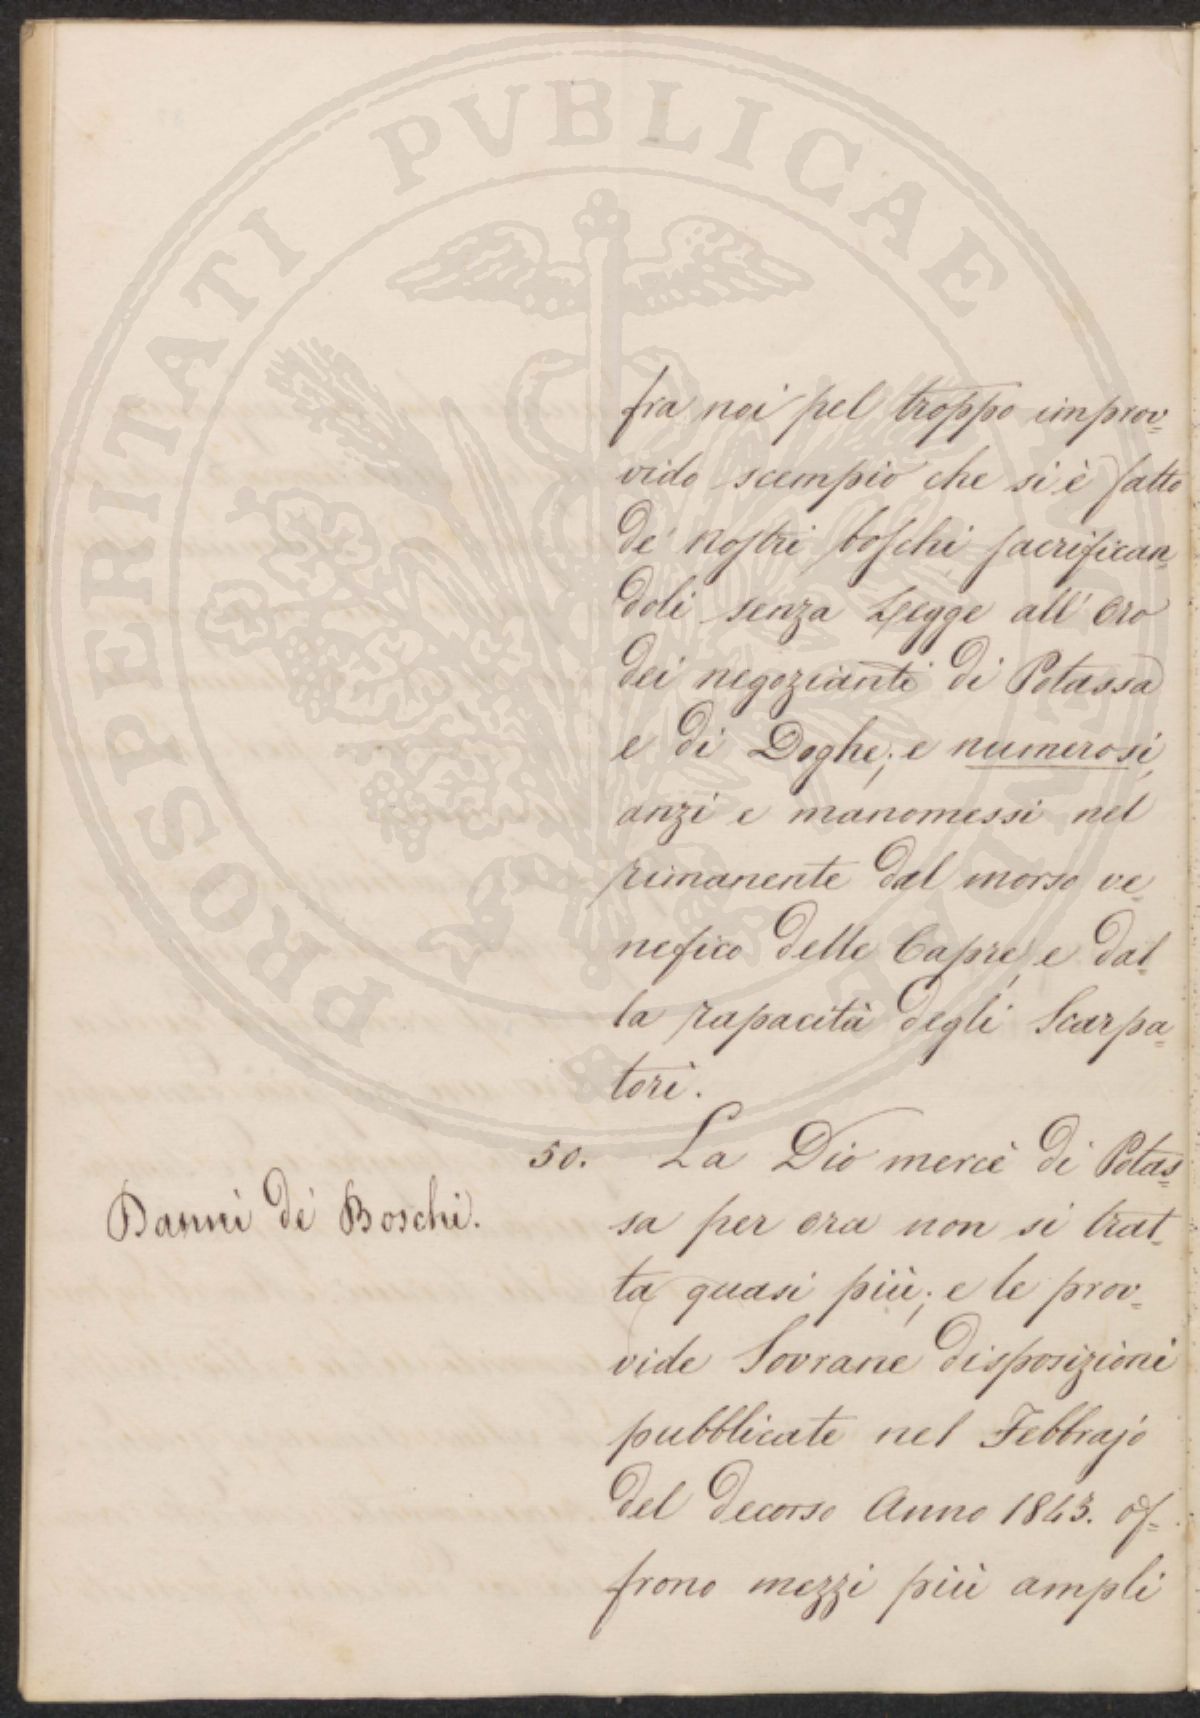 fra noi pel troppo improv=
vido scempio che si è fatto
de' nostri boschi, sacrifican=
doli senza Legge all' oro
dei negozianti di Potassa
e di Doghe; e numerosi,
anzi e manomessi nel
rimanente dal morso ve=
nefico delle Capre, e dal=
la rapacità degli Scarpa=
tori.
50. La Dio mercè di Potas=
Danni de' Boschi.
sa per ora non si trat=
ta quasi più; e le prov=
vide Sovrane disposizioni
pubblicate nel Febbrajo
del decorso Anno 1843. of=
frono mezzi più ampli
PROSPERITATI PVBLICAE